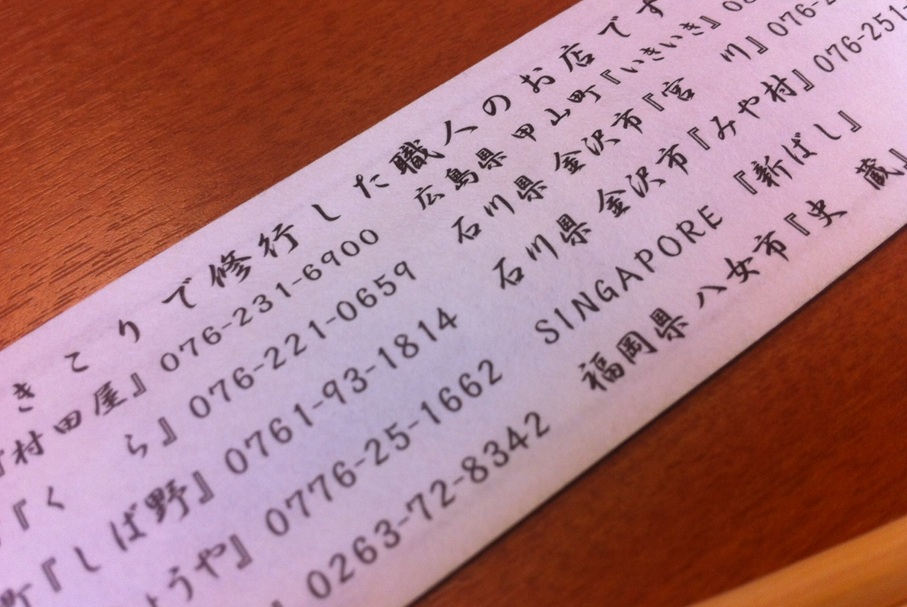 きこりで修行した職人のお店です
村田屋』076-231-6900 広島県 甲山町『いきいき』
『くら』076-221-0659 石川県 金沢市『宮 川』076-
町『しば野』0761-93-1814 石川県 金沢市『みや村』076-251-
うや』0776-25-1662 SINGAPORE 『新ばし』
』0263-72-8342 福岡県 八女市『史 蔵』